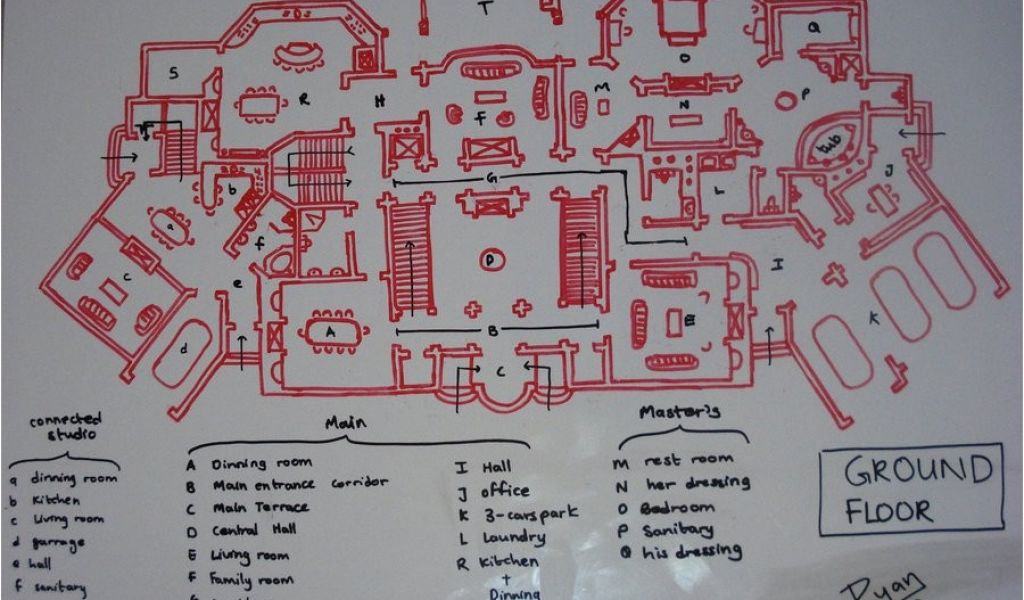 T
Q
S
O
P
R
H
M
F
N
tub
G
b
L
J
a
f
D
I
c
e
K
A
B
E
d
C
connected
studio
a dinning room
b kitchen
c living room
d garrage
e hall
f sanitary
Main
A Dinning room
B Main entrance corridor
C Main Terrace
D Central Hall
E Living room
F Family room
I Hall
J office
K 3-cars park
L Laundry
R Kitchen
+
Dinning
Master's
M rest room
N her dressing
O Bedroom
P Sanitary
Q his dressing
GROUND
FLOOR
Ryan